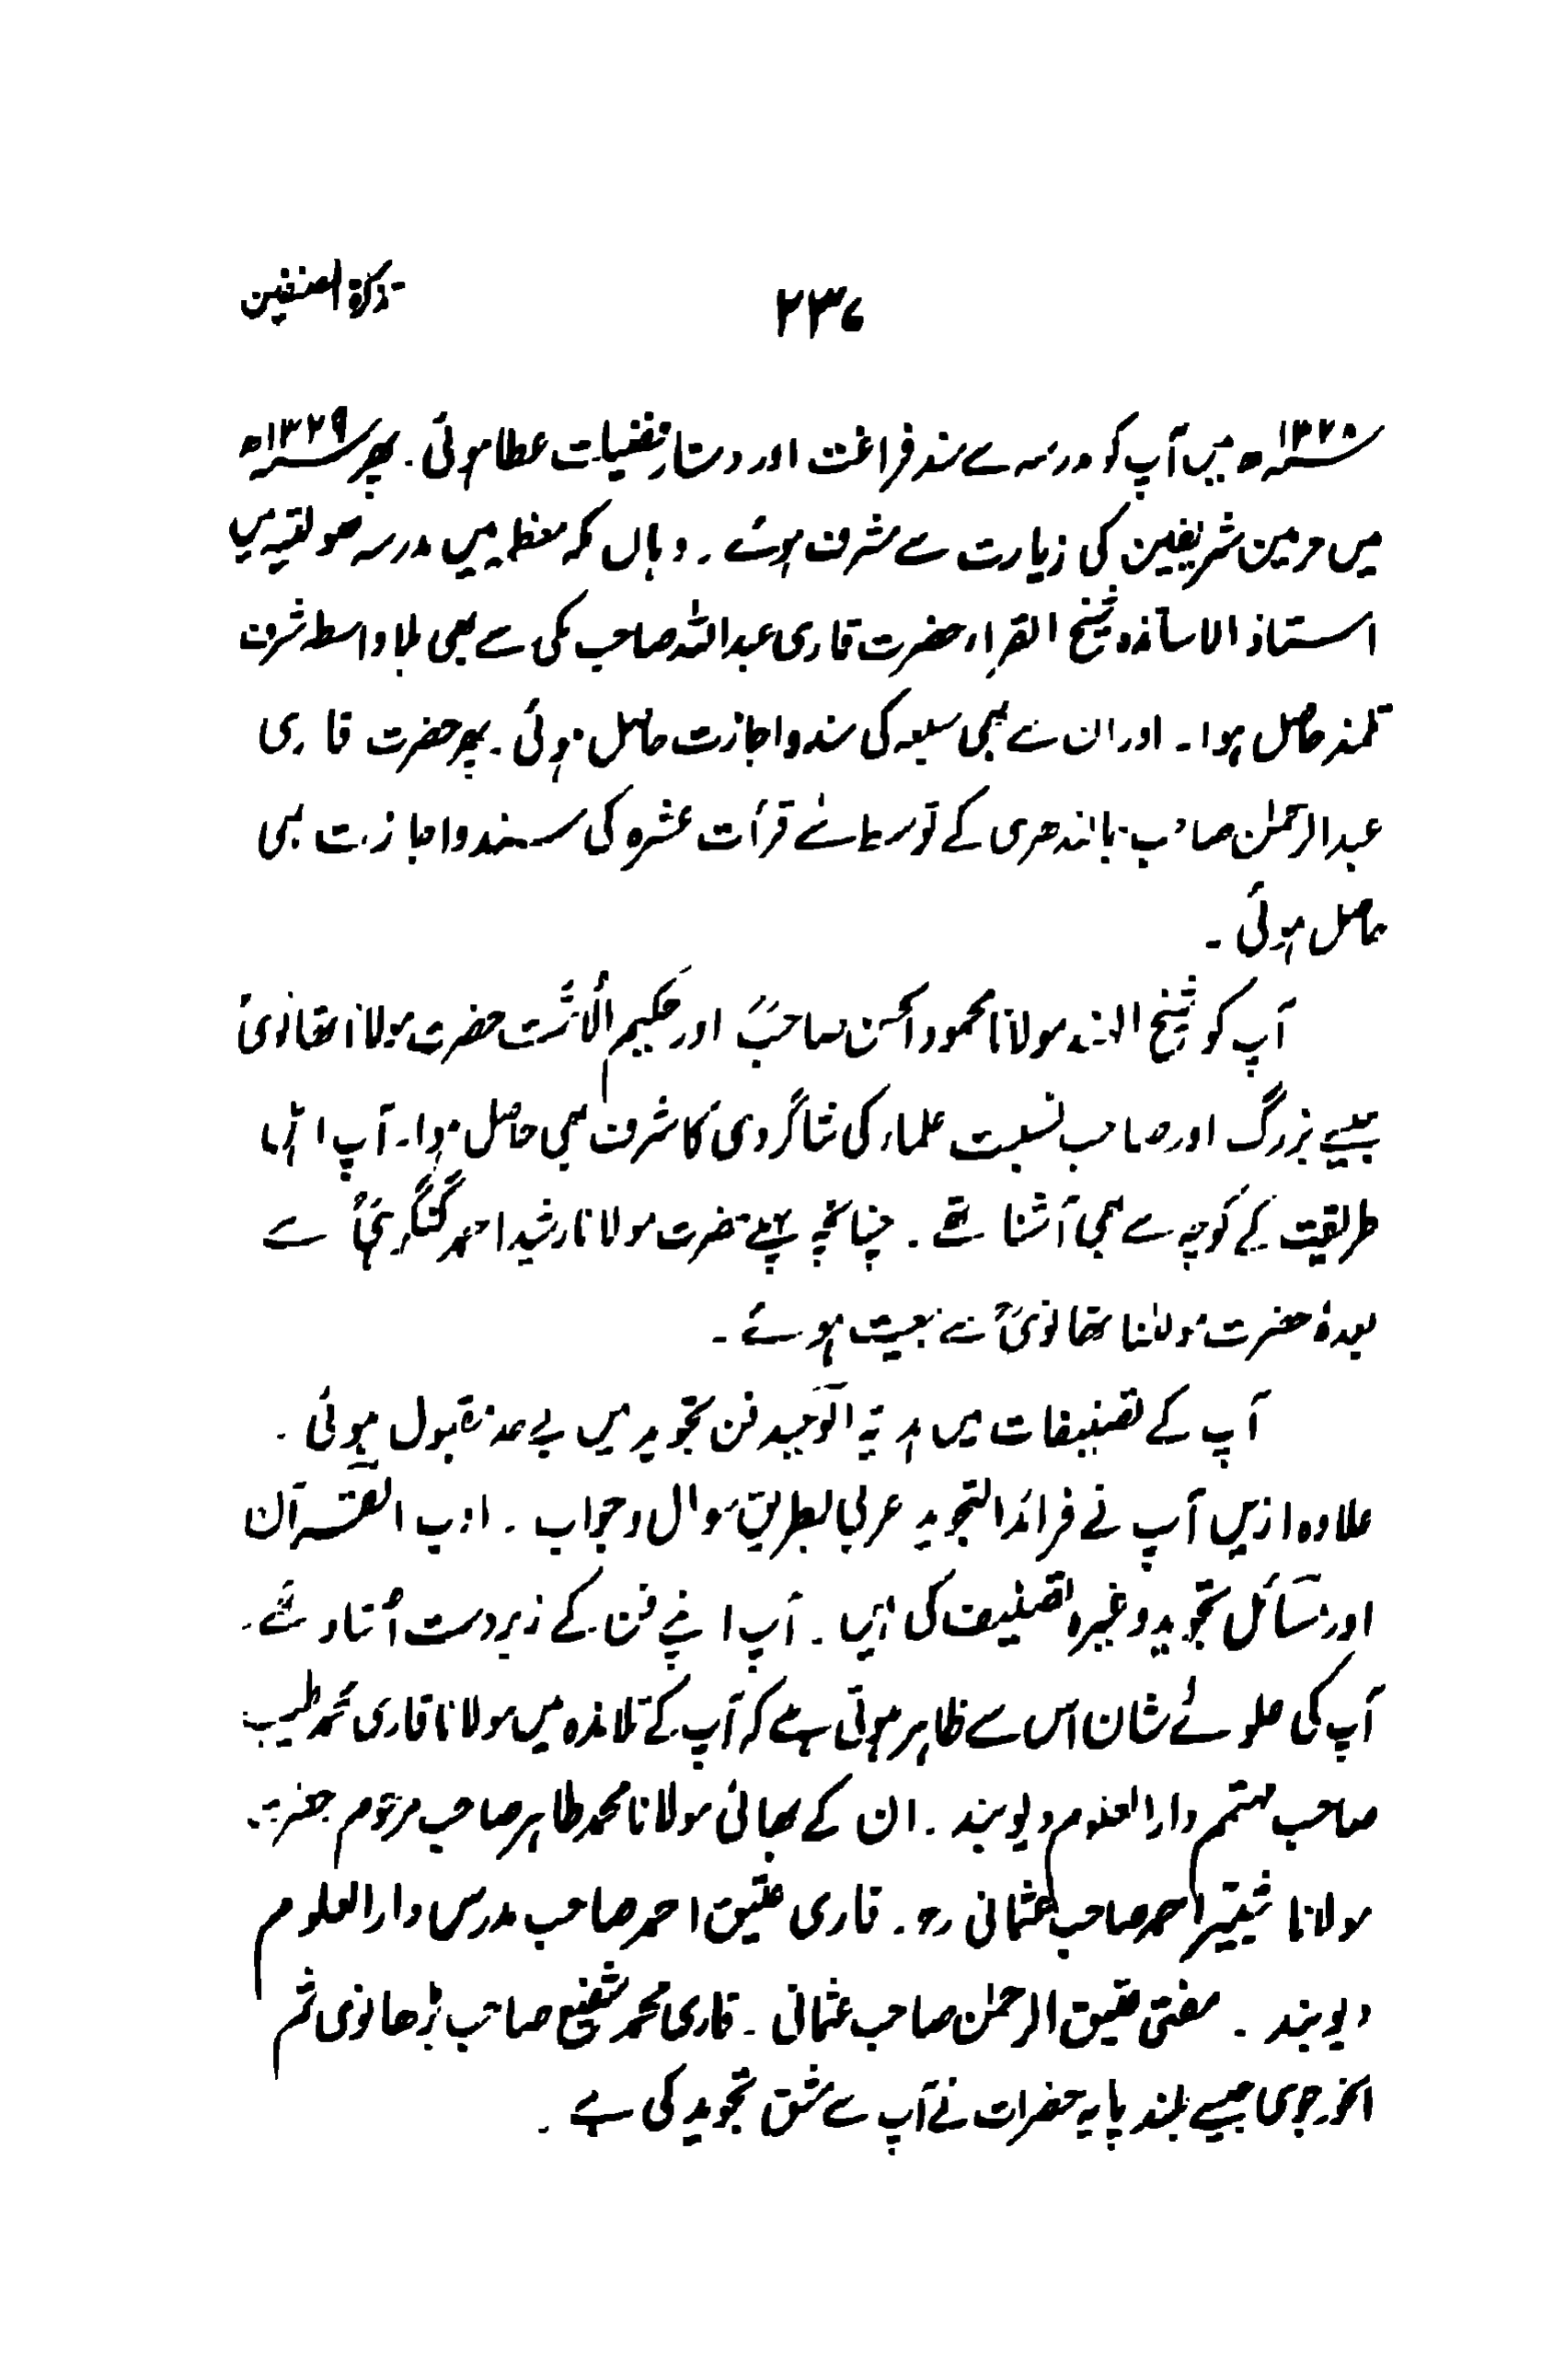 تذکرۃ المصنفین
۲۳۷
میں آپ کو مدرسہ سے سند فراغت اور دستار فضیلت عطا ہوئی۔ پھر ۱۳۲۹ھ
میں حرمین شریفین کی زیارت سے مشرف ہوئے۔ وہاں مکہ معظمہ میں مدرسہ صولتیہ میں
استاذ الاساتذہ شیخ القراء حضرت قاری عبداللہ صاحب مکی سے بھی بلا واسطہ شرف
تلمذ حاصل ہوا۔ اور ان سے بھی سبعہ کی سند و اجازت حاصل ہوئی۔ پھر حضرت قاری
عبدالرحمٰن صاحب کے توسط سے قرأت عشرہ کی سند و اجازت بھی
حاصل ہوئی۔
آپ کو شیخ الہند مولانا محمود الحسن صاحبؒ اور حکیم الاُمّت حضرت مولانا تھانویؒ
جیسے بزرگ اور صاحب نسبت علماء کی شاگردی کا شرف بھی حاصل ہوا۔ آپ اہل
طریقت کے کوچہ سے بھی آشنا تھے۔ چنانچہ پہلے حضرت مولانا رشید احمد گنگوہیؒ سے
بعدہٗ حضرت مولٰنا تھانویؒ سے بیعت ہوئے۔
آپ کے تصنیفات میں ہدیۃ الوحید فن تجوید میں بے حد مقبول ہوئی۔
علاوہ ازیں آپ نے فرائد التجوید عربی بطریق سوال و جواب۔ ادب القرآن
اور مسائل تجوید وغیرہ تصنیف کی ہیں۔ آپ اپنے فن کے زبردست اُستاد تھے۔
آپ کی علوئے شان اس سے ظاہر ہوتی ہے کہ آپ کے تلامذہ میں مولانا قاری محمد طیب
صاحب مہتمم دارالعلوم دیوبند۔ ان کے بھائی مولانا محمد طاہر صاحب مرحوم حضرت
مولانا شبیر احمد صاحب عثمانی رح۔ قاری عتیق احمد صاحب مدرس دارالعلوم
دیوبند۔ مفتی عتیق الرحمٰن صاحب عثمانی۔ قاری محمد شفیع صاحب بڑھانوی ثم
الخورجوی جیسے بلند پایہ حضرات نے آپ سے مشق تجوید کی ہے۔